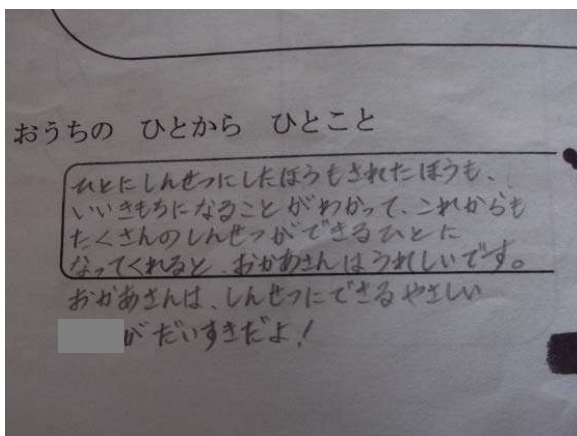 おうちの ひとから ひとこと
ひとにしんせつにしたほうもされたほうも、
いいきもちになることがわかって、これからも
たくさんのしんせつができるひとに
なってくれると、おかあさんはうれしいです。
おかあさんは、しんせつにできるやさしい
がだいすきだよ!